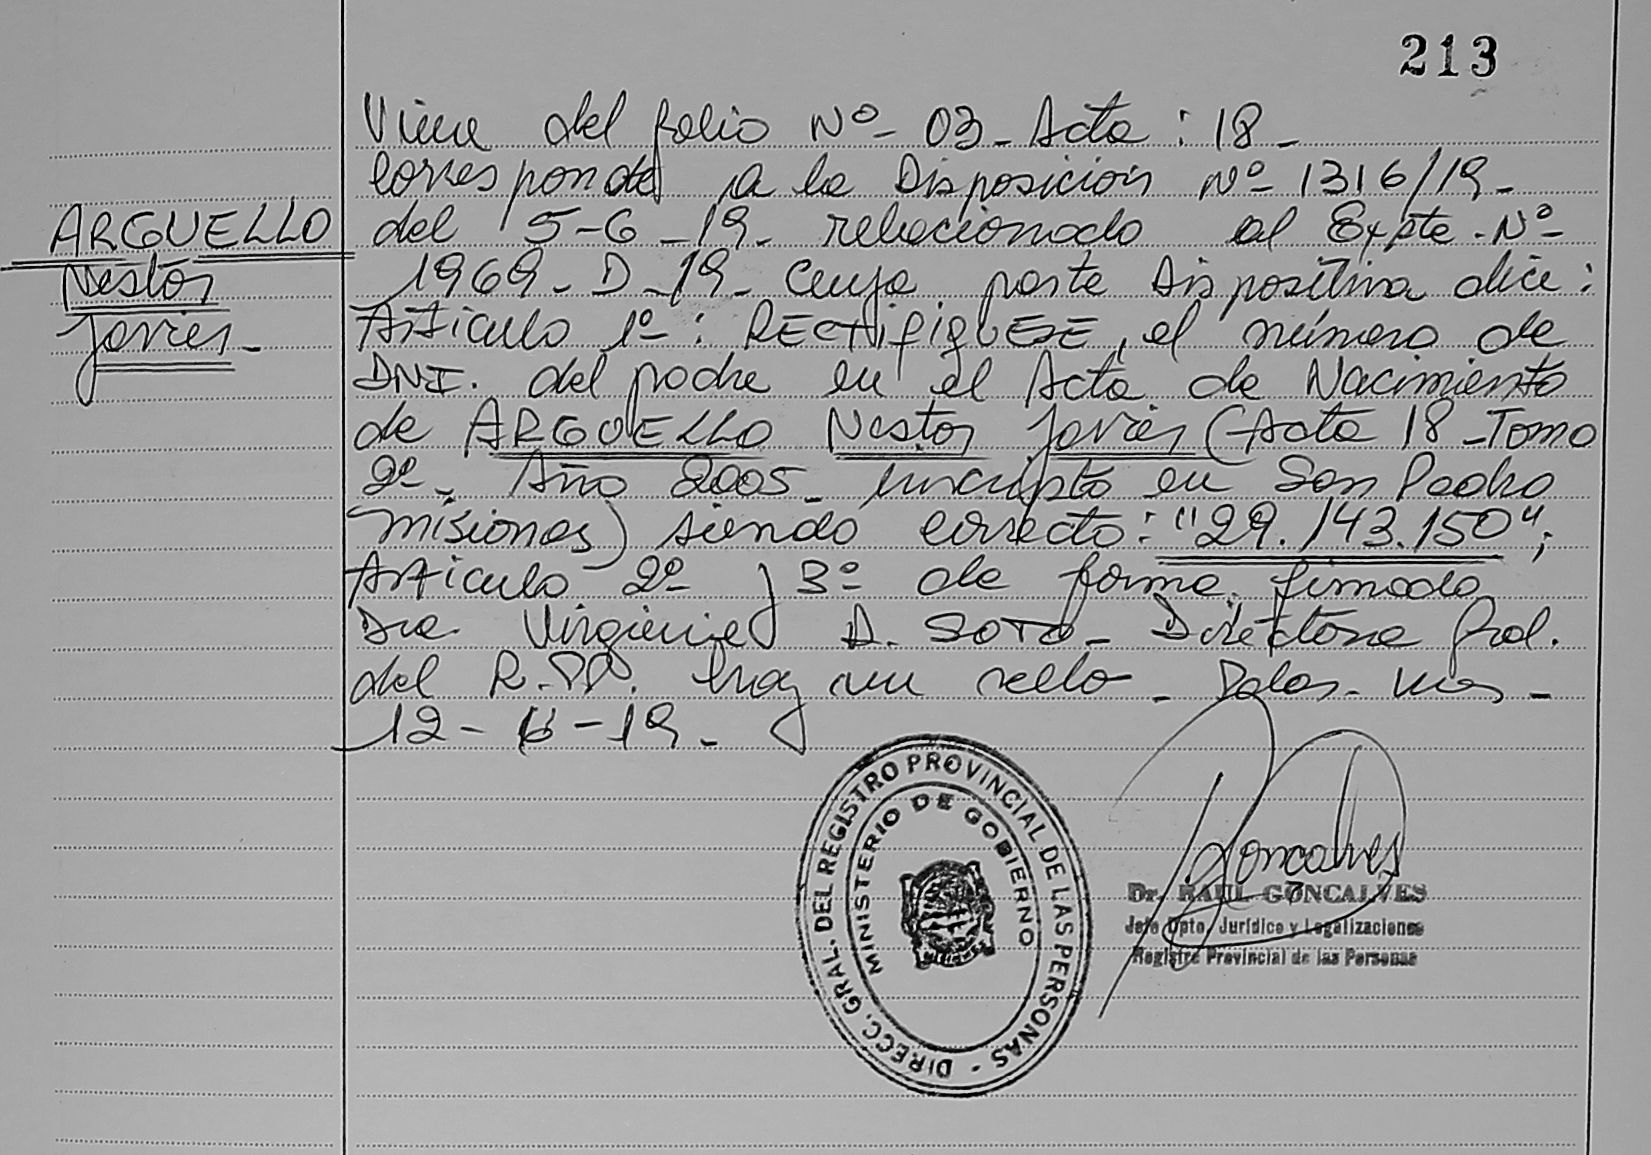 213
Viene del folio Nº- 03- Acta: 18-
Corresponde a la Disposición Nº- 1316/19-
ARGUELLO
Nestor
Javier-
del 5-6-19- relacionado al Expte. Nº-
1969-D-19- Cuya parte Dispositiva dice:
Artículo 1º: RECTIFIQUESE, el número de
DNI. del padre en el Acta de Nacimiento
de ARGUELLO Nestor Javier (Acta 18-Tomo
2º- Año 2005- inscripto en San Pedro
Misiones) siendo correcto: "29.143.150";
Artículo 2º y 3º de forma. firmado
Dra. Virginia D. SOTO- Directora Gral.
del R.PP. hay un sello- Pdas- Mnes-
12-6-19-
DIRECC. GRAL. DEL REGISTRO PROVINCIAL DE LAS PERSONAS -
MINISTERIO DE GOBIERNO
Goncalves
Dr. RAUL GONCALVES
Jefe Dpto. Jurídico y Legalizaciones
Registro Provincial de las Personas